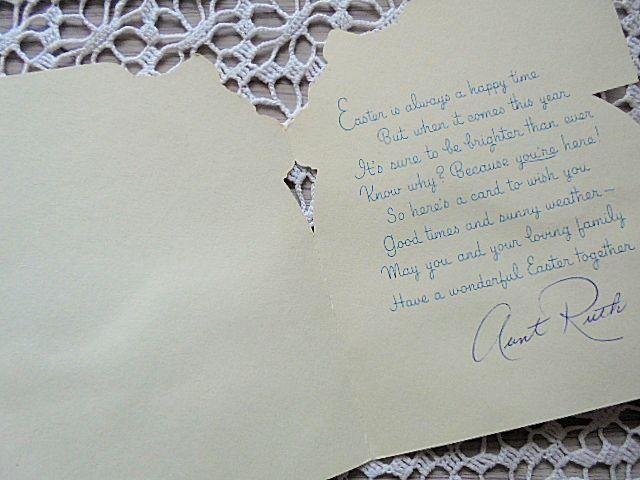 Easter is always a happy time
But when it comes this year
It's sure to be brighter than ever
Know why? Because you're here!
So here's a card to wish you
Good times and sunny weather—
May you and your loving family
Have a wonderful Easter together
Aunt Ruth